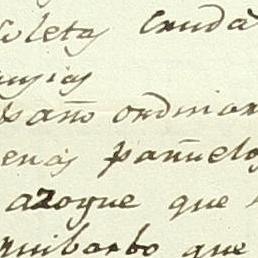 coletas Cruda
paño ordinar
enas pañuelo
azogue que
quibarbo que